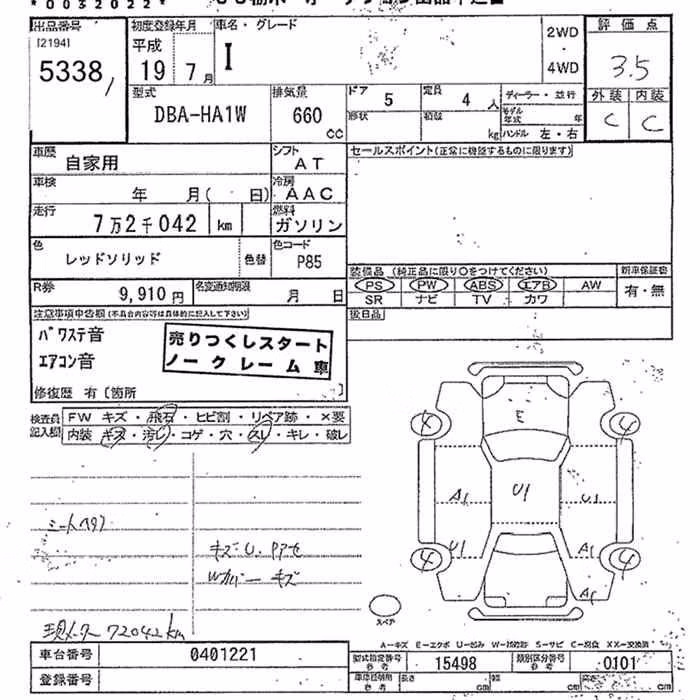 *0032022*
出品番号 初度登録年月 車名・グレード 2WD 評価点
[2194] 平成 ・
5338 19 7月 I 4WD 3.5
型式 排気量 ドア 5 定員 4人 ディーラー・並行 外装 内装
DBA-HA1W 660 形状 積載 モデル年式 年 C C
CC kg ハンドル 左・右
車歴 自家用 シフト AT セールスポイント(正常に機能するものに限ります)
車検 年 月( 日) 冷房 AAC
走行 7万2千042 km 燃料 ガソリン
色 レッドソリッド 色替 色コード P85
装備品 (純正品に限り○をつけてください) 新車保証書
R券 9,910円 名変通知期限 月 日 PS PW ABS エアB AW 有・無
SR ナビ TV カワ
注意事項申告欄(不具合内容等は具体的に記入して下さい) 後日品
パワステ音 売りつくしスタート
エアコン音 ノークレーム車
修復歴 有〔箇所 〕
検査員記入欄 FW キズ・飛石・ヒビ割・リペア跡・×要
内装 キズ・汚レ・コゲ・穴・スレ・キレ・破レ
E
4 4
A1 U1 U1
U1 A1
4 4
A1
シートヘタリ
キズ・U・Pアセ
Wカバー キズ
スペア
現メーター 72042km
A-キズ E-エクボ U-凹み W-補修跡 S-サビ C-腐食 XX-交換済
車台番号 0401221 型式指定番号 参考 15498 類別区分番号 参考 0101
登録番号 車体証明用 参考 長さ cm 幅 cm 高さ cm